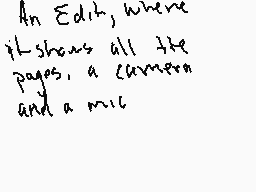 An Edit, where
it shows all the
pages, a camera
and a mic